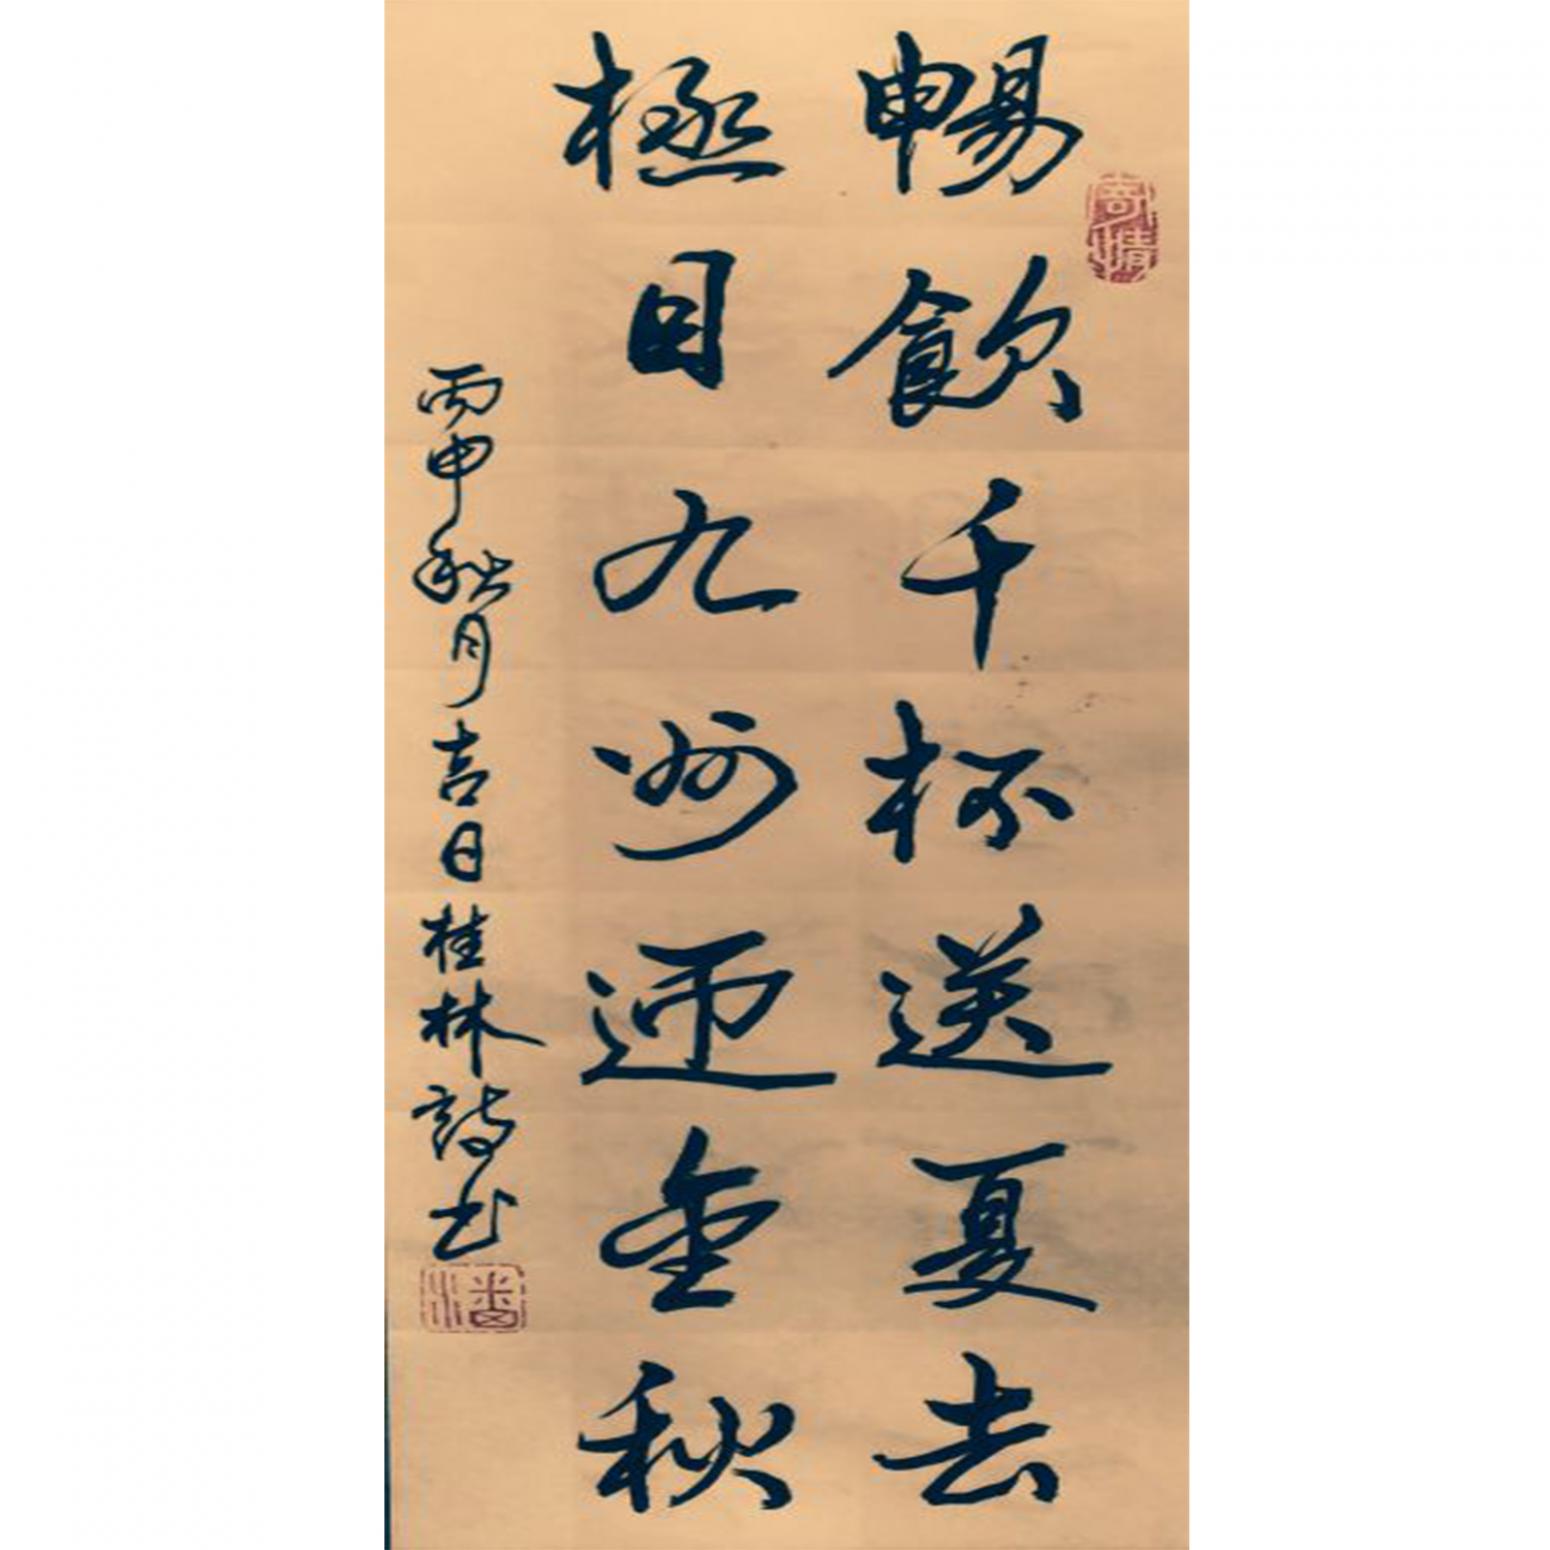 暢飲千杯送夏去
極目九州迎金秋
丙申秋月吉日桂林詩书
寄情
潘